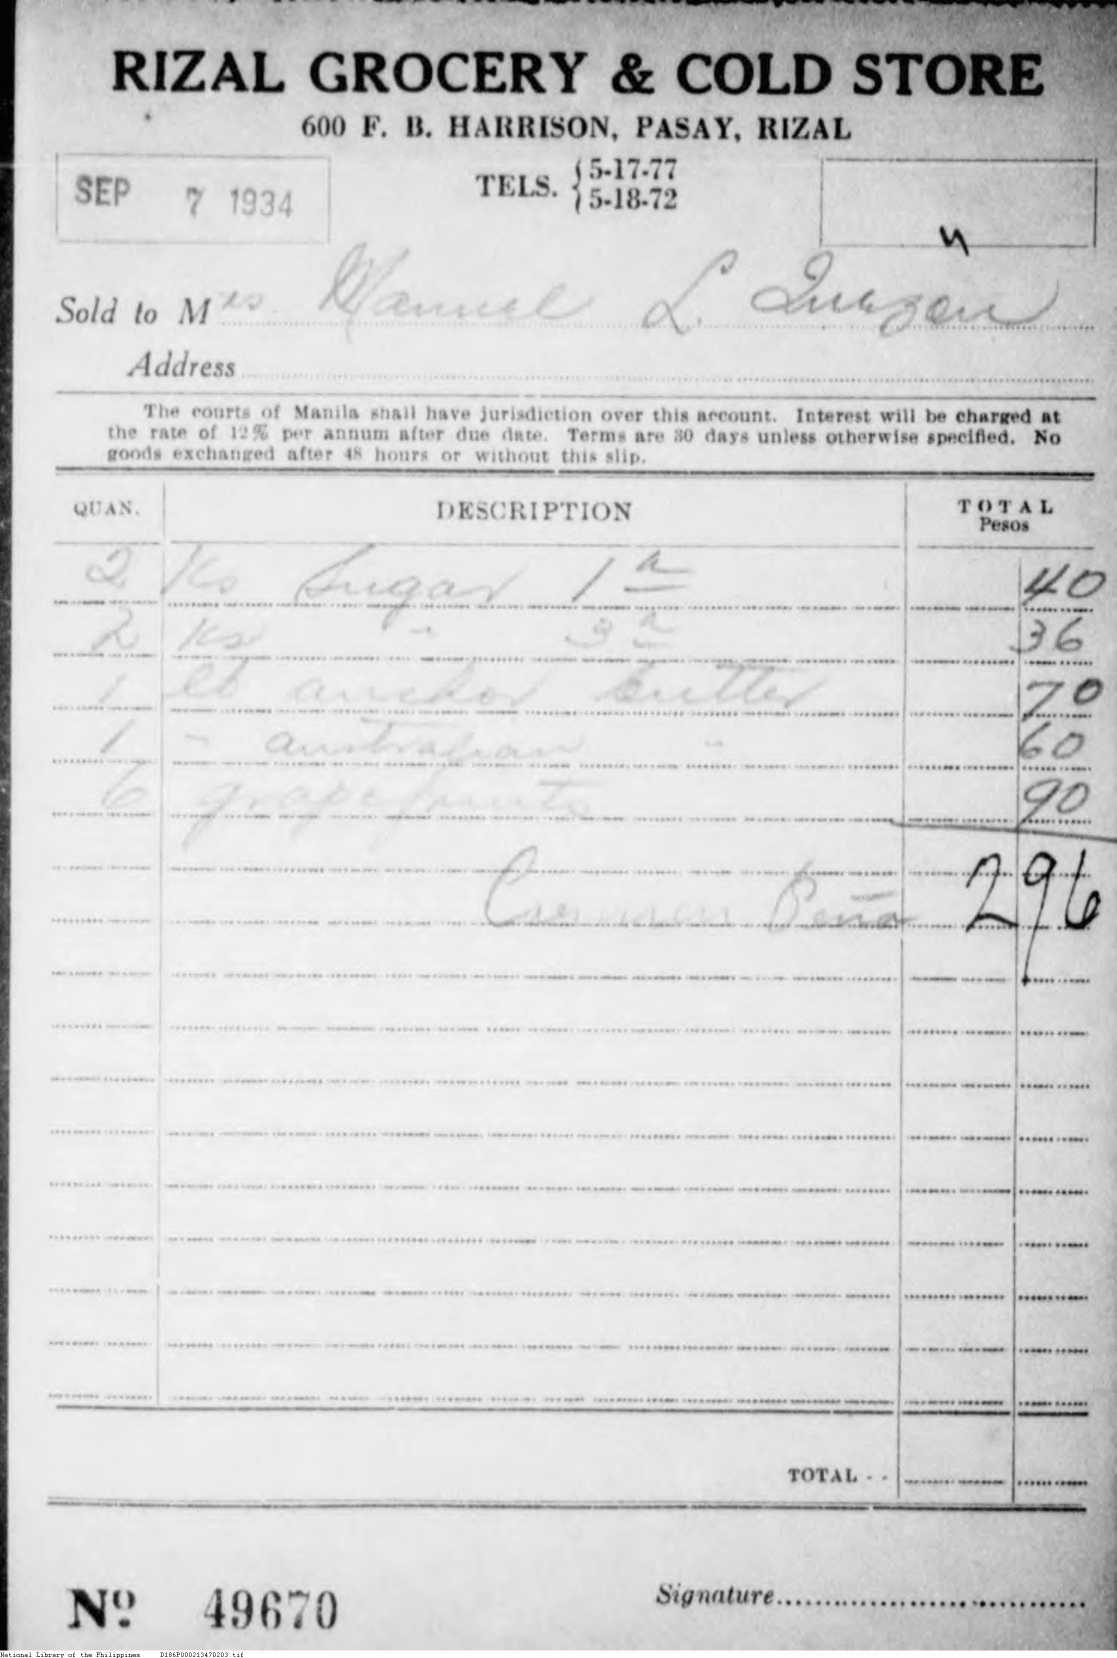 RIZAL GROCERY & COLD STORE
600 F. B. HARRISON, PASAY, RIZAL
SEP 7 1934
TELS. { 5-17-77
5-18-72
Sold to Mrs Manuel L. Quezon
Address
The courts of Manila shall have jurisdiction over this account. Interest will be charged at
the rate of 12% per annum after due date. Terms are 30 days unless otherwise specified. No
goods exchanged after 48 hours or without this slip.
QUAN. DESCRIPTION TOTAL
Pesos
2 Ks Sugar 1a 40
2 Ks " 3a 36
1 lb anchor butter 70
1 " australian " 60
6 grapefruits 90
2 96
Carmen Peña
TOTAL - -
No. 49670 Signature
National Library of the Philippines D186P000213470203.tif